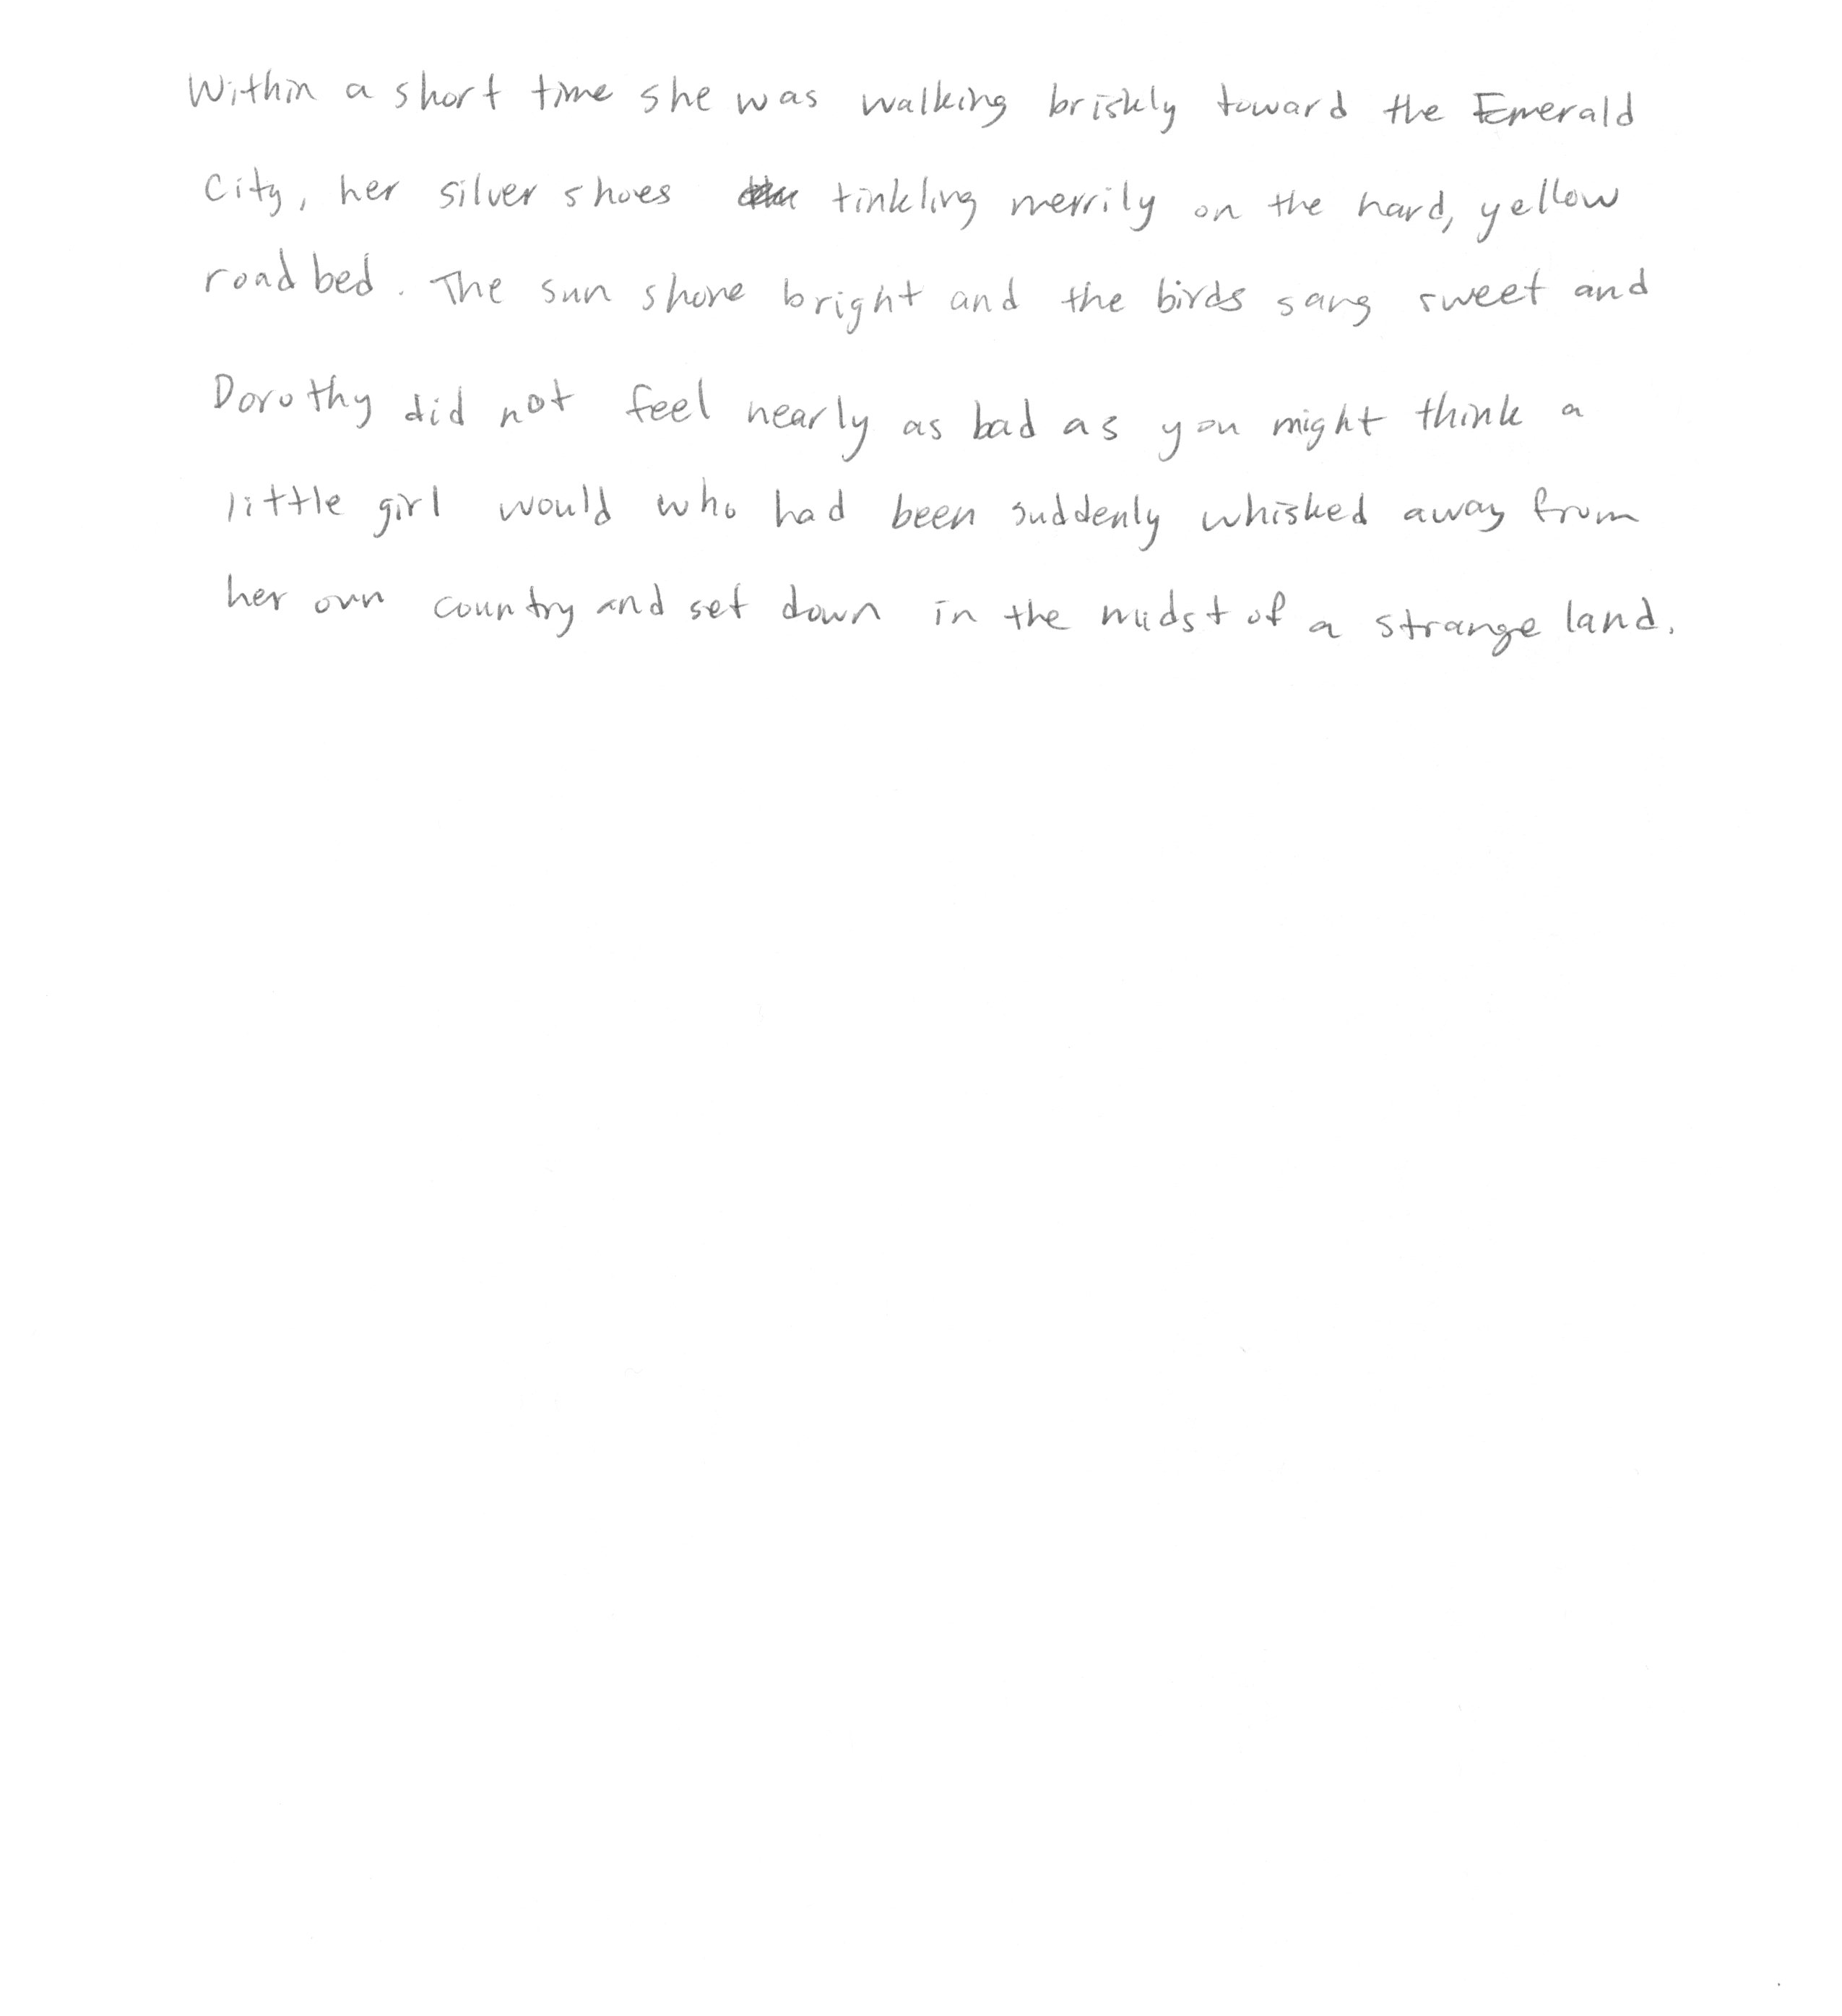 Within a short time she was walking briskly toward the Emerald
City, her silver shoes tinkling merrily on the hard, yellow
road bed. The sun shone bright and the birds sang sweet and
Dorothy did not feel nearly as bad as you might think a
little girl would who had been suddenly whisked away from
her own country and set down in the midst of a strange land.